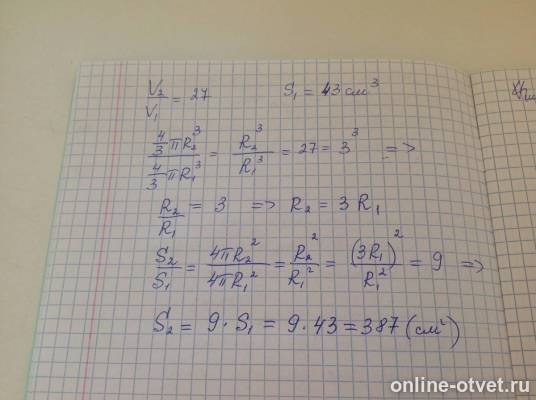 V₂/V₁ = 27 S₁ = 43 см³
(4/3 πR₂³)/(4/3 πR₁³) = R₂³/R₁³ = 27 = 3³ =>
R₂/R₁ = 3 => R₂ = 3R₁
S₂/S₁ = 4πR₂²/4πR₁² = R₂²/R₁² = (3R₁)²/R₁² = 9 =>
S₂ = 9·S₁ = 9·43 = 387 (см²)
online-otvet.ru